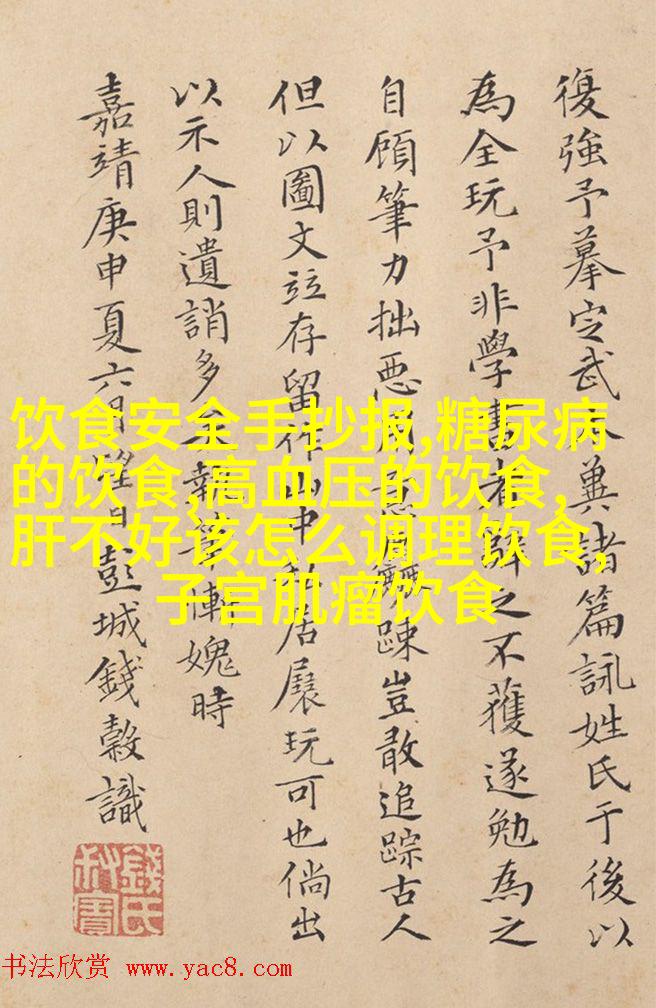 復強予摹定武
為全玩予非學書者辭之不獲遂勉為之
自顧筆力拙惡
但以圖文竝存留
以示人則遺誚多
嘉靖庚申夏六月
冀諸篇詠姓氏于後以
踈豈敢追踪古人
中私居展玩可也倘出
慚媿時
日彭城錢穀識
饮食安全手抄报,糖尿病
的饮食,高血压的饮食,
肝不好该怎么调理饮食,
子宫肌瘤饮食
錢氏
书法欣赏 www.yac8.com